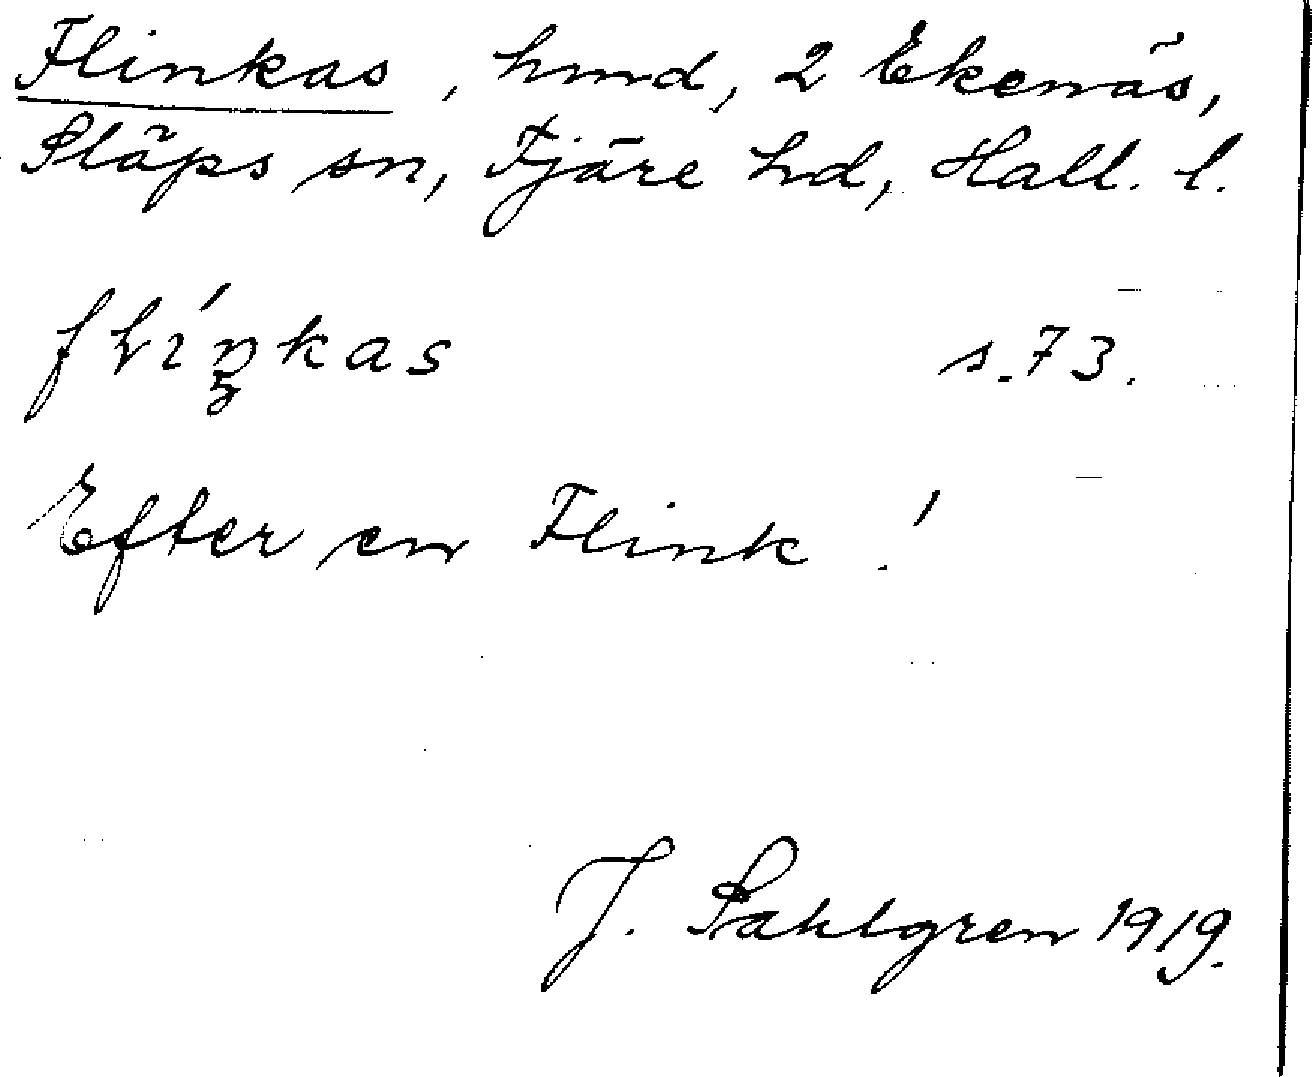 Flinkas, hmd, 2 Ekenäs,
Släps sn, Fjäre hd, Hall. l.
s. 73.
Efter en Flink!
J. Sahlgren 1919.